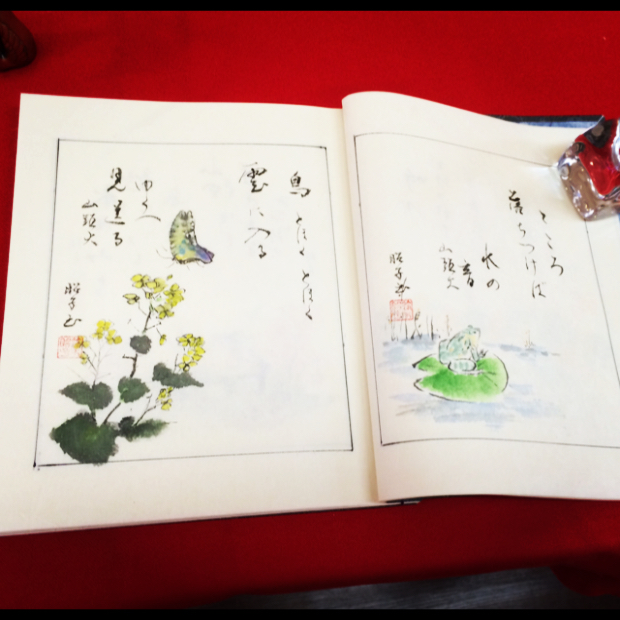 鳥とほくとほく
雲に入る
ゆくへ
見送る
山頭火
昭子
こころ
落ちつけば
水の
音
山頭火
昭子